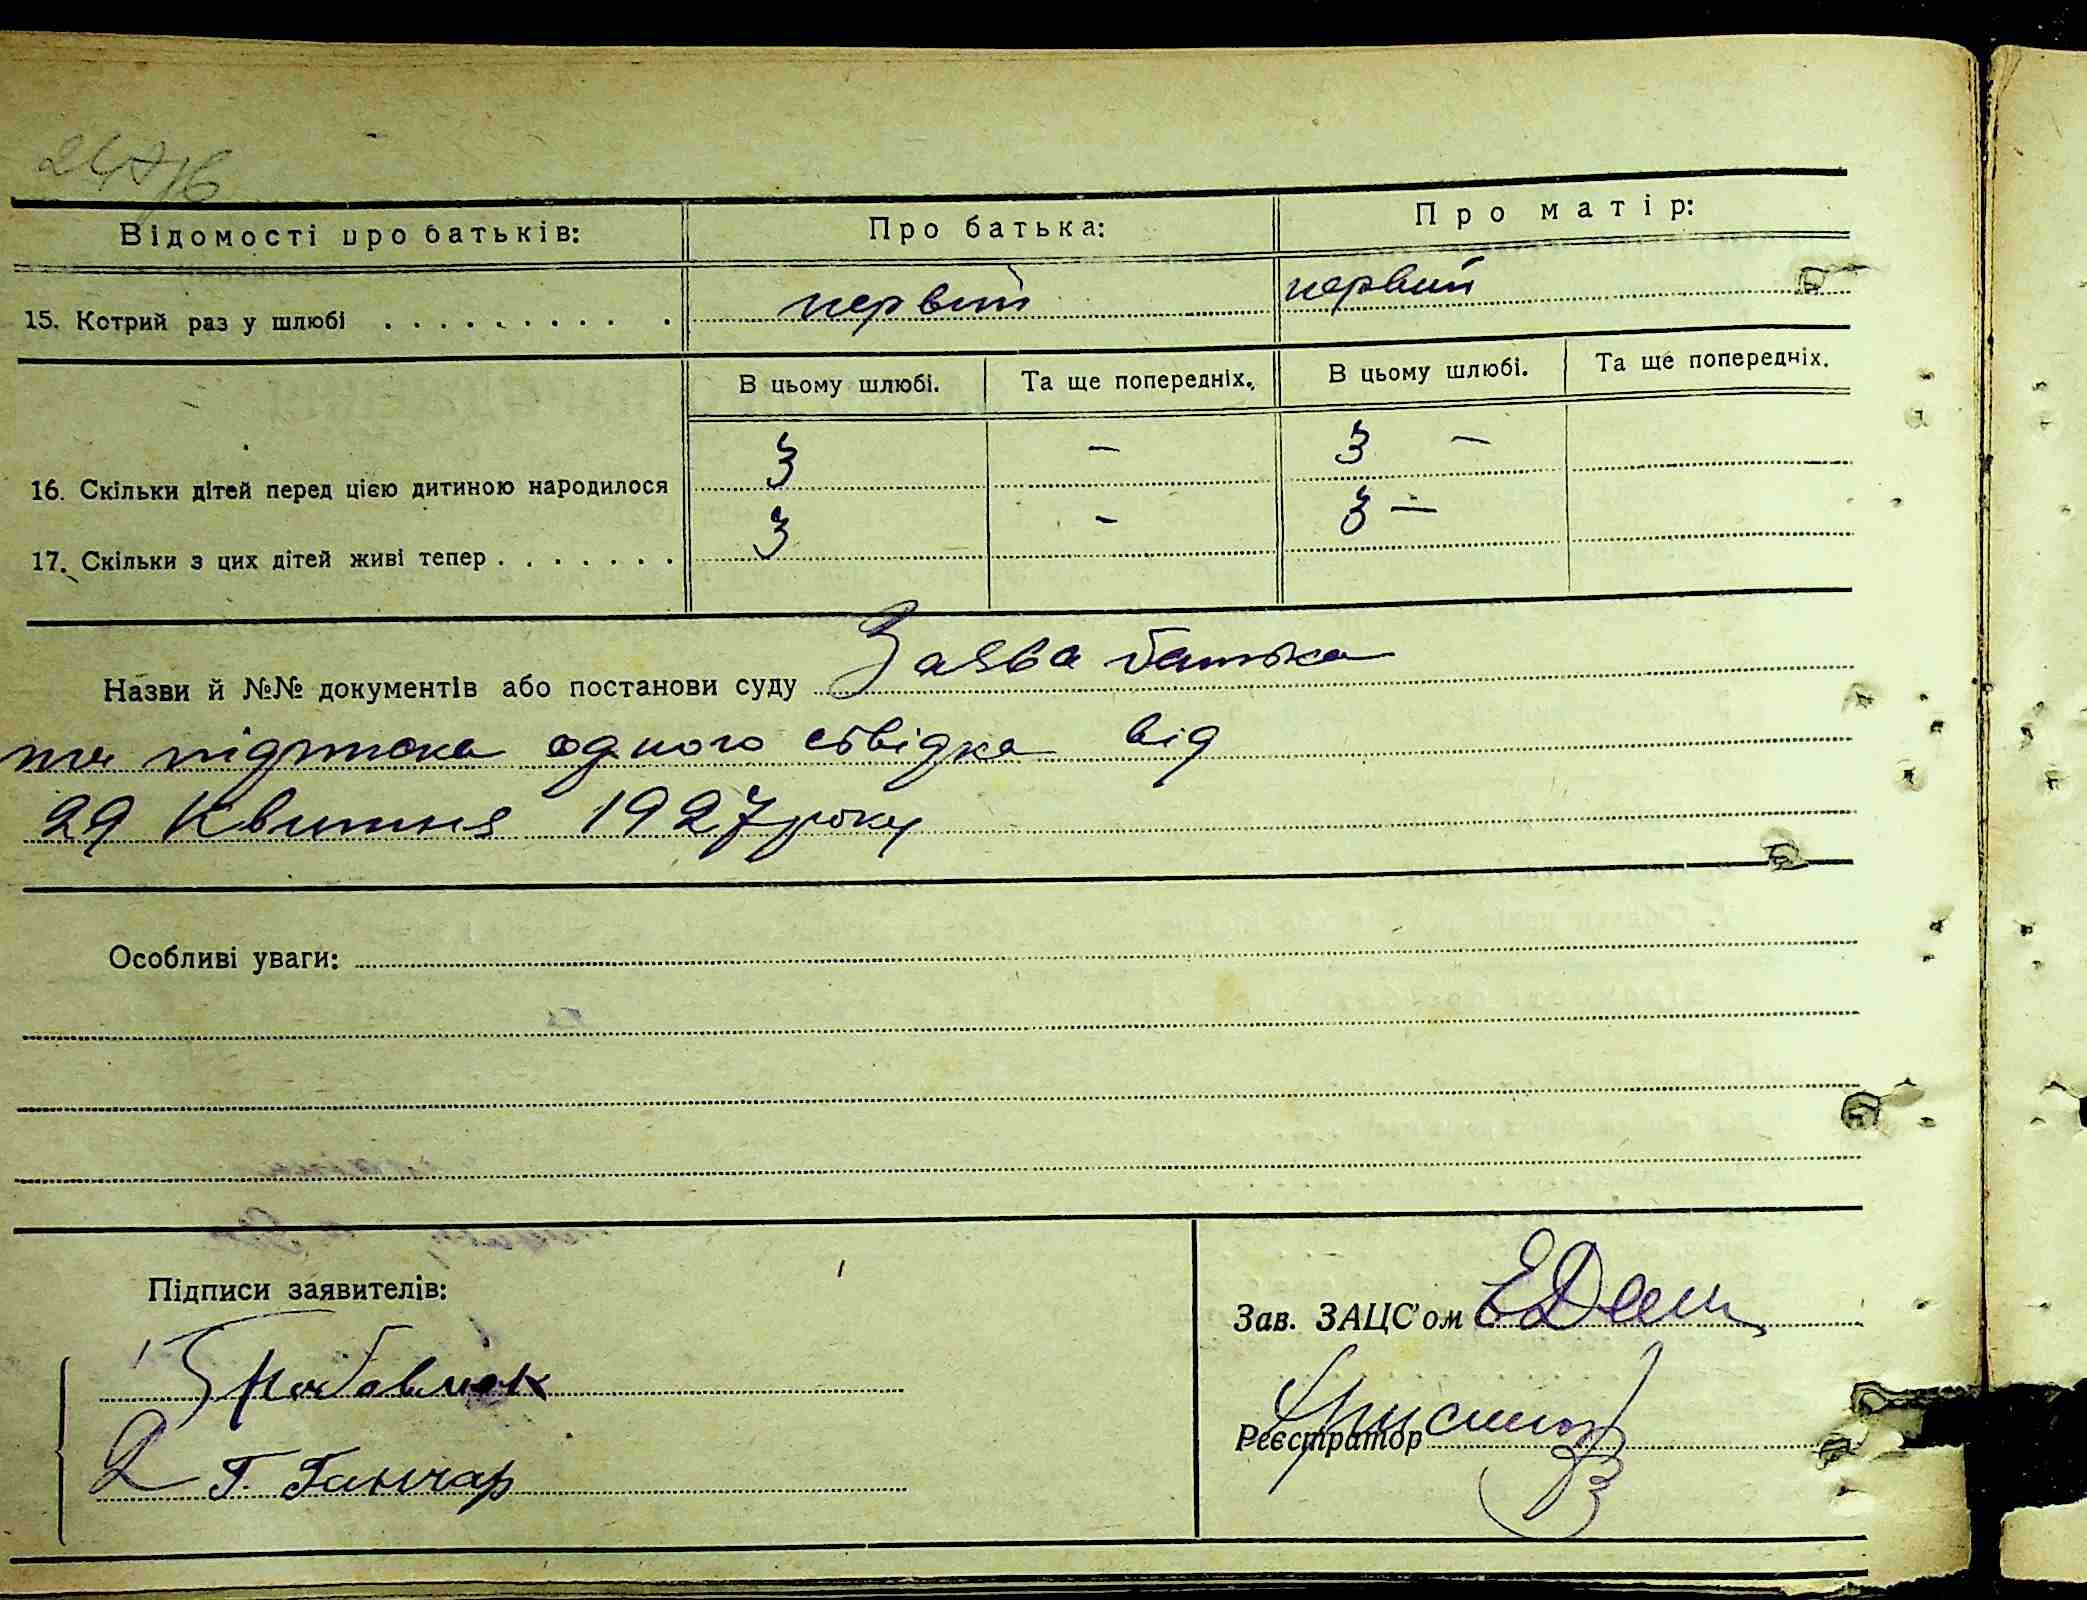 Відомості про батьків: Про батька: Про матір:
15. Котрий раз у шлюбі первий первий
В цьому шлюбі. Та ще попередніх. В цьому шлюбі. Та ще попередніх.
16. Скільки дітей перед цією дитиною народилося 3 – 3 –
17. Скільки з цих дітей живі тепер 3 - 3 –
Назви й №№ документів або постанови суду Заява батька
та підписка одного свідка від
29 Квитня 1927 року
Особливі уваги:
Підписи заявителів:
1
2 Г. Ганчар
Зав. ЗАЦС'ом
Реєстратор